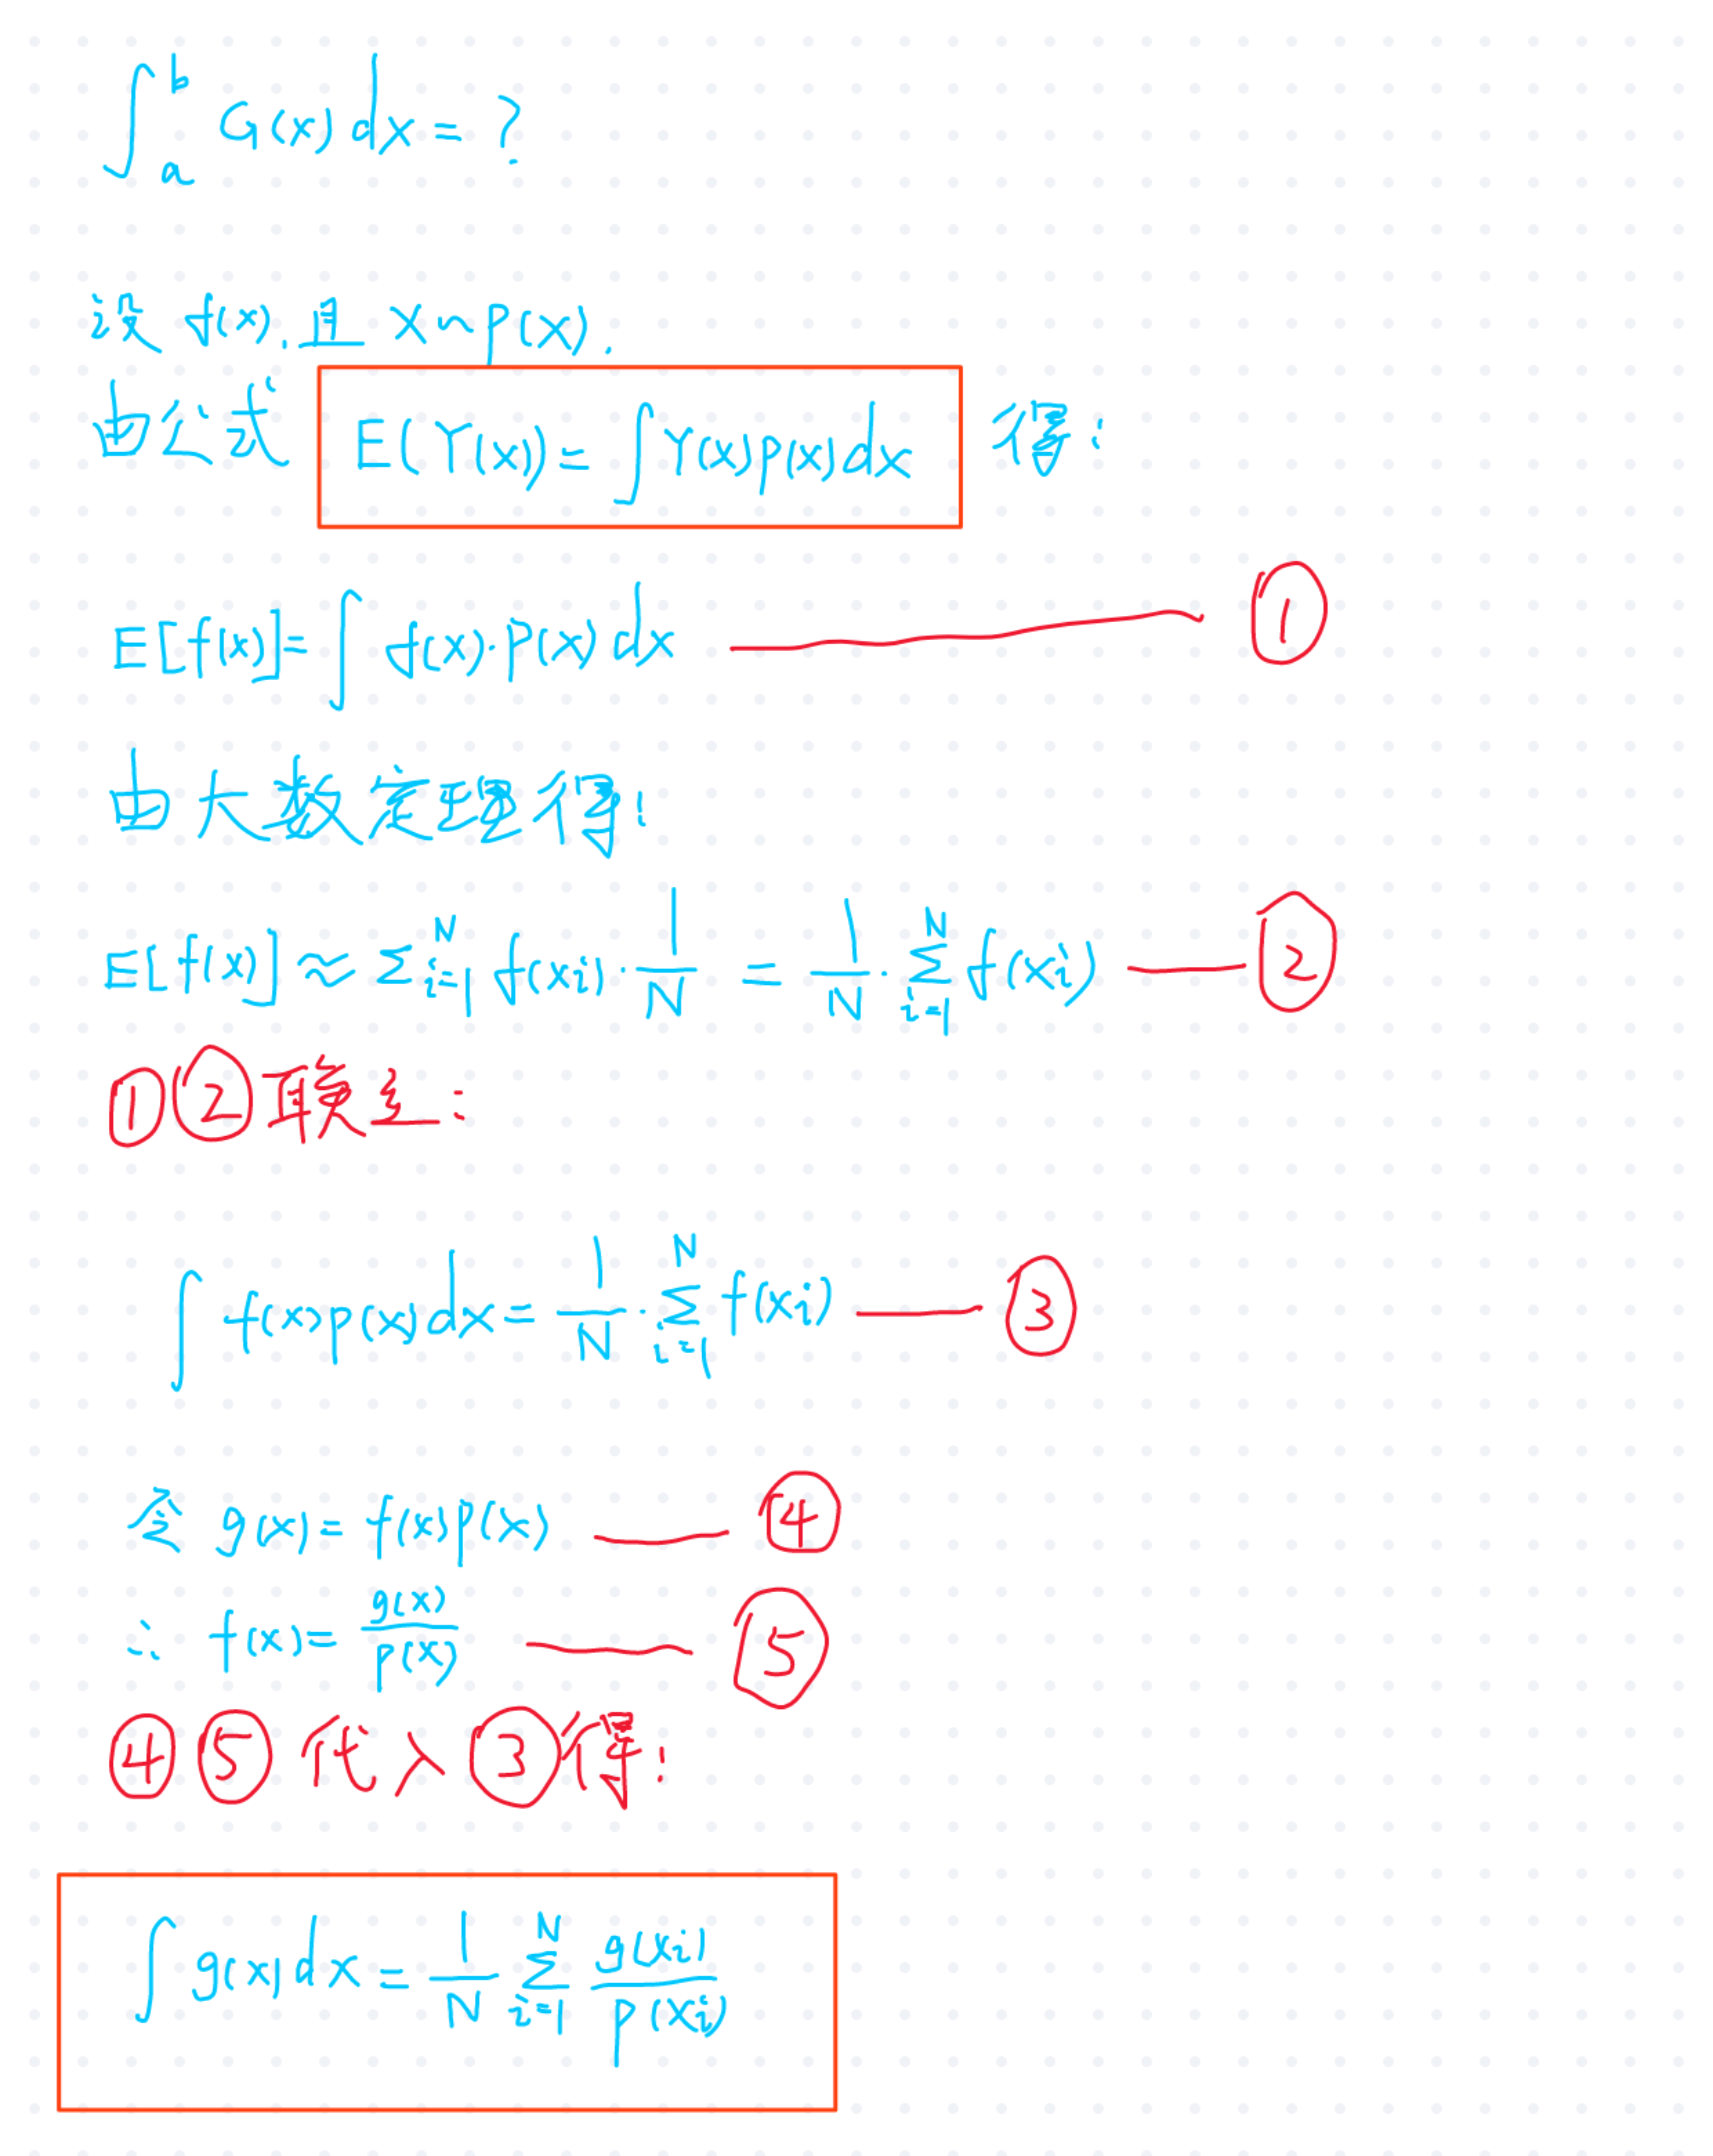 ∫_a^b G(x) dx = ?
设 f(x), 且 X~P(X).
由公式 E(Y(x)) = ∫Y(x)p(x)dx 得:
E[f(x)] = ∫ f(x)·P(x) dx —— ①
由大数定理得:
E[f(x)] ≈ Σ_{i=1}^N f(xi)·1/N = 1/N · Σ_{i=1}^N f(xi) —— ②
①②联立:
∫ f(x)p(x)dx = 1/N · Σ_{i=1}^N f(xi) —— ③
令 g(x) = f(x)p(x) —— ④
∴ f(x) = g(x)/p(x) —— ⑤
④⑤代入③得:
∫ g(x)dx = 1/N Σ_{i=1}^N g(xi)/p(xi)